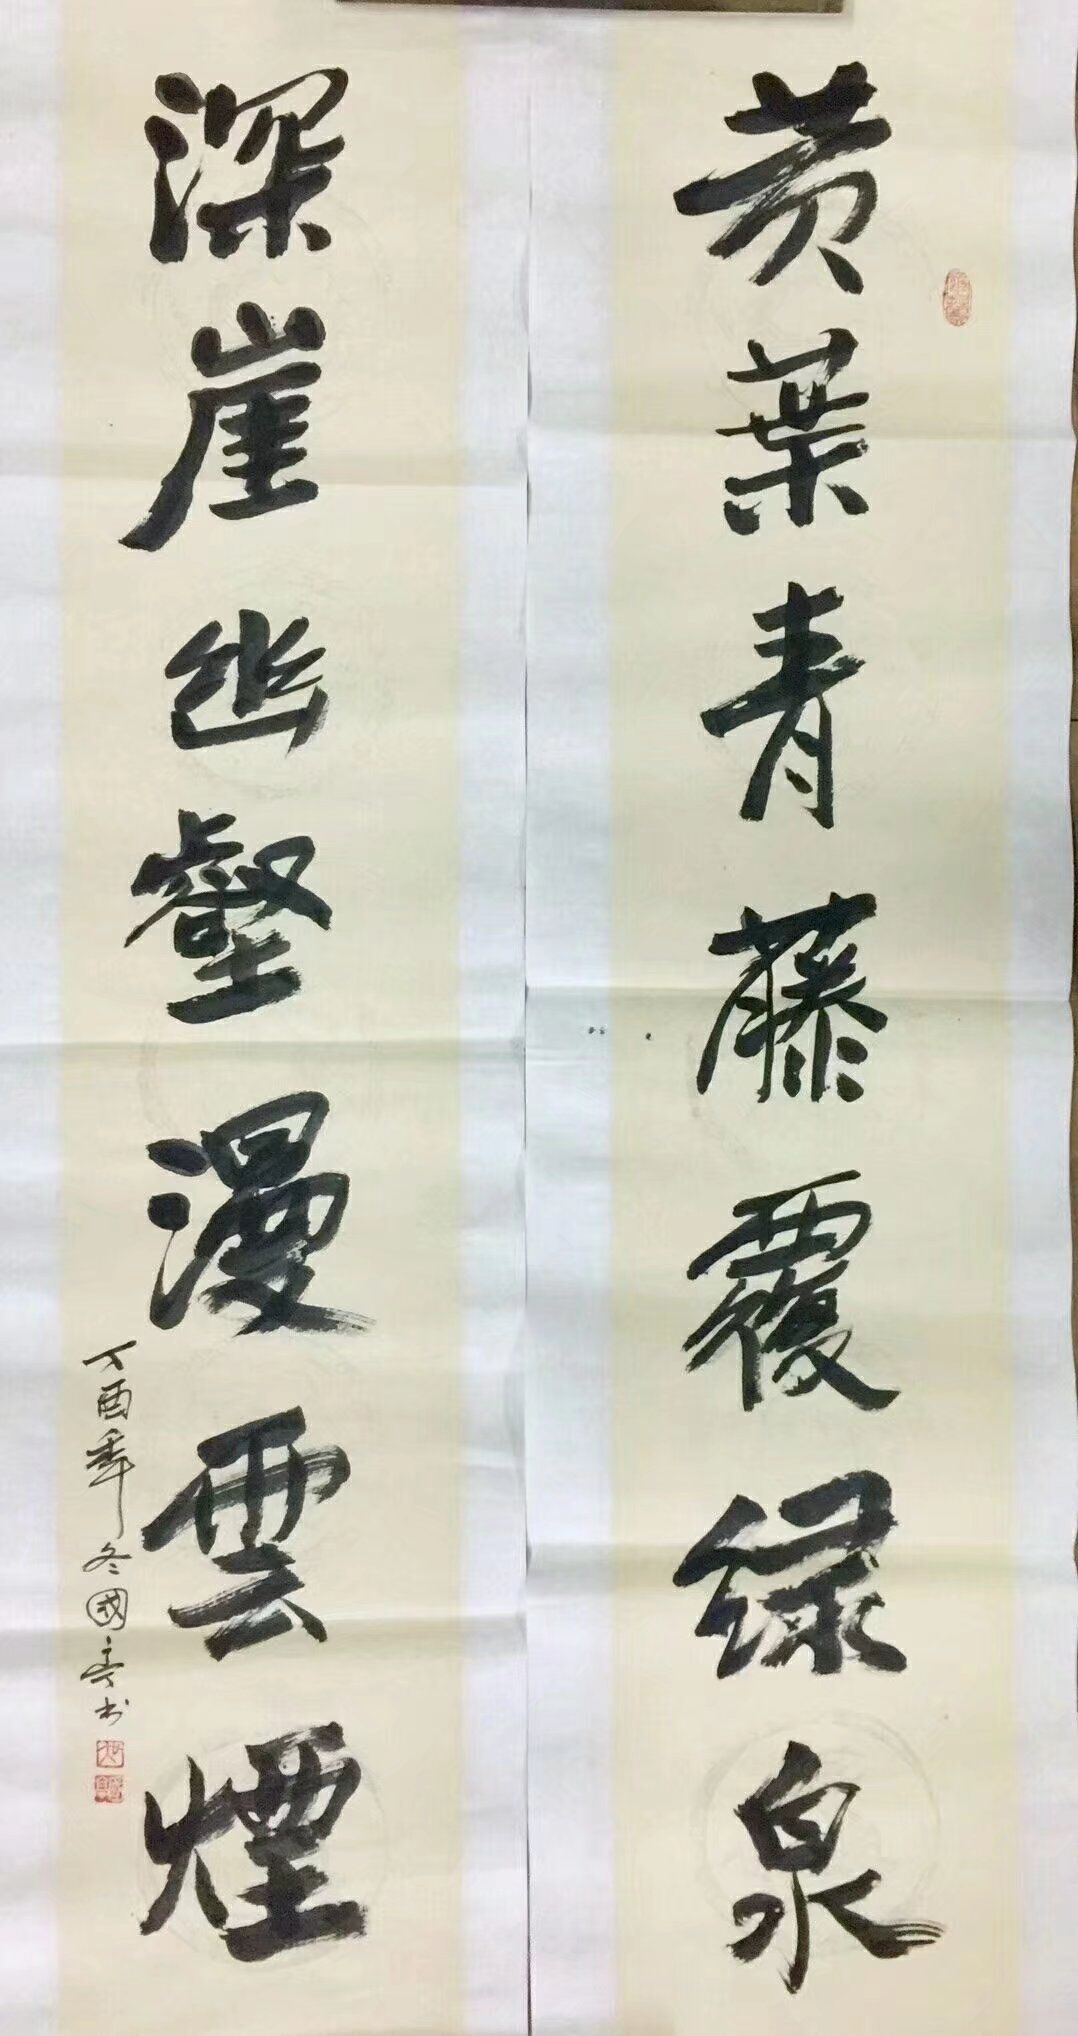 黄葉青藤覆緑泉
深崖幽壑漫雲煙
丁酉年冬國亮书